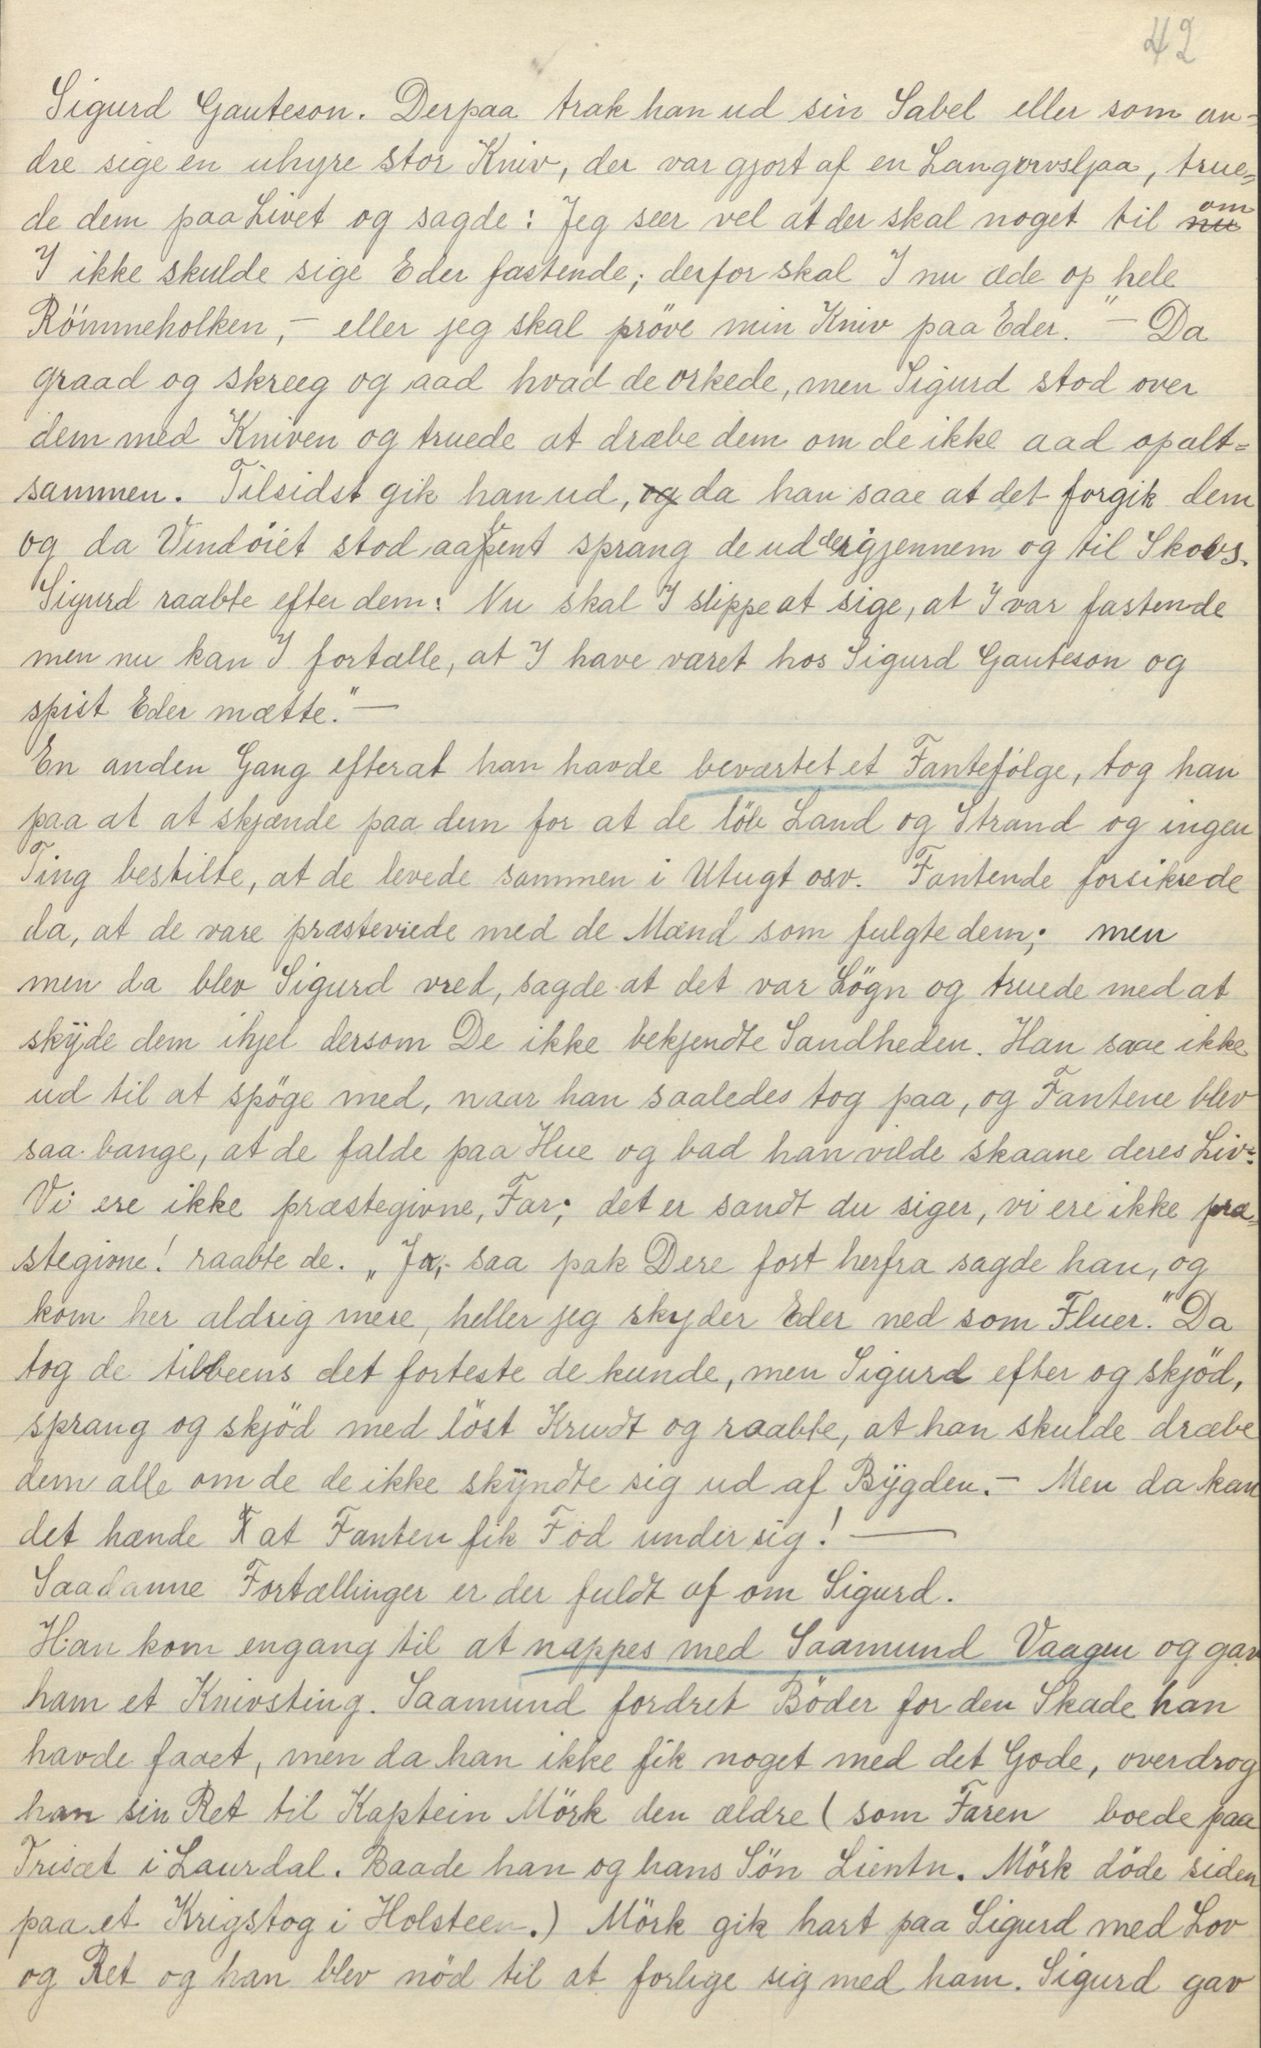 42
Sigurd Gauteson. Derpaa trak han ud sin Sabel eller som an-
dre sige en uhyre stor Kniv, der var gjort af en Langorvsljaa, true=
de dem paa Livet og sagde: Jeg seer vel at der skal noget til om
I ikke skulde sige Eder fastende; derfor skal I nu æde op hele
Römmeholken, — eller jeg skal pröve min Kniv paa Eder." — Da
graad og skreeg og aad hvad de orkede, men Sigurd stod over
dem med Kniven og truede at dræbe dem om de ikke aad opalt=
sammen. Tilsidst gik han ud, da han saae at det forgik dem
og da Vindöiet stod aapent sprang de ud derigjennem og til Skovs.
Sigurd raabte efter dem: Nu skal I slippe at sige, at I var fastende
men nu kan I fortælle, at I have været hos Sigurd Gauteson og
spist Eder mætte." —
En anden Gang efterat han havde beværtet et Fantefölge, tog han
paa at at skjænde paa dem for at de löb Land og Strand og ingen
Ting bestilte, at de levede sammen i Utugt osv. Fantende forsikrede
da, at de vare præsteviede med de Mænd som fulgte dem; men
men da blev Sigurd vred, sagde at det var Lögn og truede med at
skyde dem ihjel dersom De ikke bekjendte Sandheden. Han saae ikke
ud til at spöge med, naar han saaledes tog paa, og Fantene blev
saa bange, at de falde paa Hue og bad han vilde skaane deres Liv:
Vi ere ikke præstegivne, Far; det er sandt du siger, vi ere ikke præ-
stegivne! raabte de. „Ja, saa pak Dere fost herfra sagde han, og
kom her aldrig mere, heller jeg skyder Eder ned som Fluer." Da
tog de tilbeens det forteste de kunde, men Sigurd efter og skjöd,
sprang og skjöd med löst Krudt og raabte, at han skulde dræbe
dem alle om de de ikke skyndte sig ud af Bygden. — Men da kan
det hænde at Fanten fik Fod under sig! —
Saadanne Fortællinger er der fuldt af om Sigurd.
Han kom engang til at nappes med Saamund Vaagen og gav
ham et Knivsting. Saamund fordret Böder for den Skade han
havde faaet, men da han ikke fik noget med det Gode, overdrog
han sin Ret til Kaptein Mörk den ældre (som Faren boede paa
Trisæt i Laurdal. Baade han og hans Sön Lientn. Mörk döde siden
paa et Krigstog i Holsteen.) Mörk gik hart paa Sigurd med Lov
og Ret og han blev nöd til at forlige sig med ham. Sigurd gav